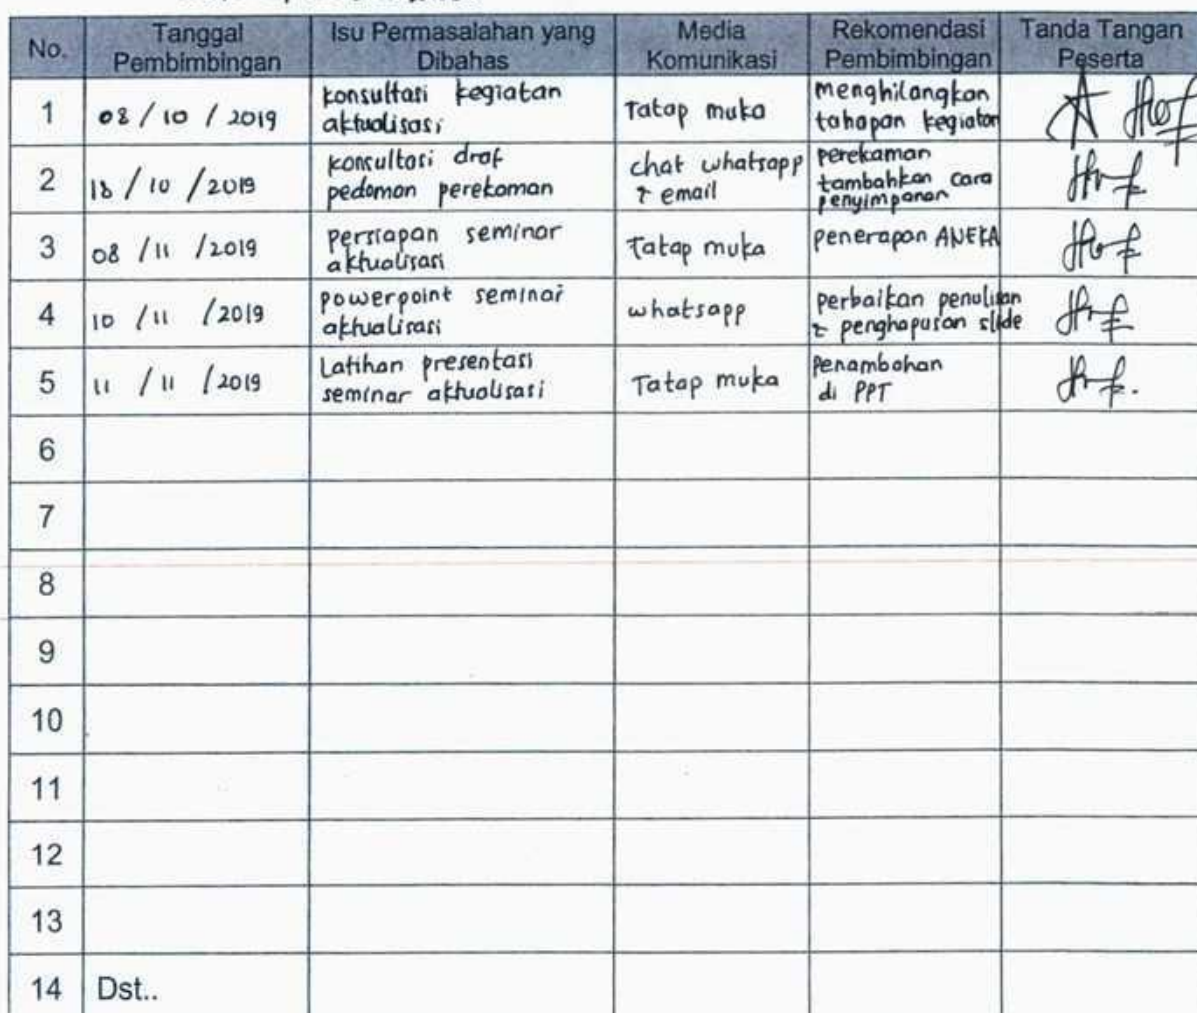 No.
Tanggal
Pembimbingan
Isu Permasalahan yang
Dibahas
Media
Komunikasi
Rekomendasi
Pembimbingan
Tanda Tangan
Peserta
1
08 / 10 / 2019
konsultasi kegiatan
aktualisasi
Tatap muka
menghilangkan
tahapan kegiatan
2
18 / 10 / 2019
konsultasi draf
pedoman perekaman
chat whatsapp
& email
perekaman
tambahkan cara
penyimpanan
3
08 / 11 / 2019
persiapan seminar
aktualisasi
Tatap muka
penerapan ANEKA
4
10 / 11 / 2019
powerpoint seminar
aktualisasi
whatsapp
perbaikan penulisan
& penghapusan slide
5
11 / 11 / 2019
Latihan presentasi
seminar aktualisasi
Tatap muka
penambahan
di PPT
6
7
8
9
10
11
12
13
14
Dst..